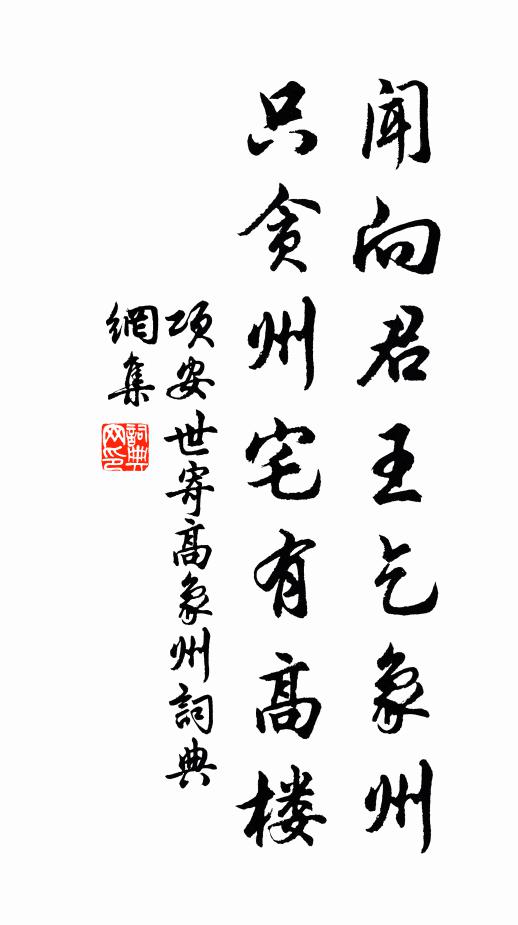 闻向君王乞象州
只贪州宅有高楼
项安世寄高象州詞典
網集
詞典
网印